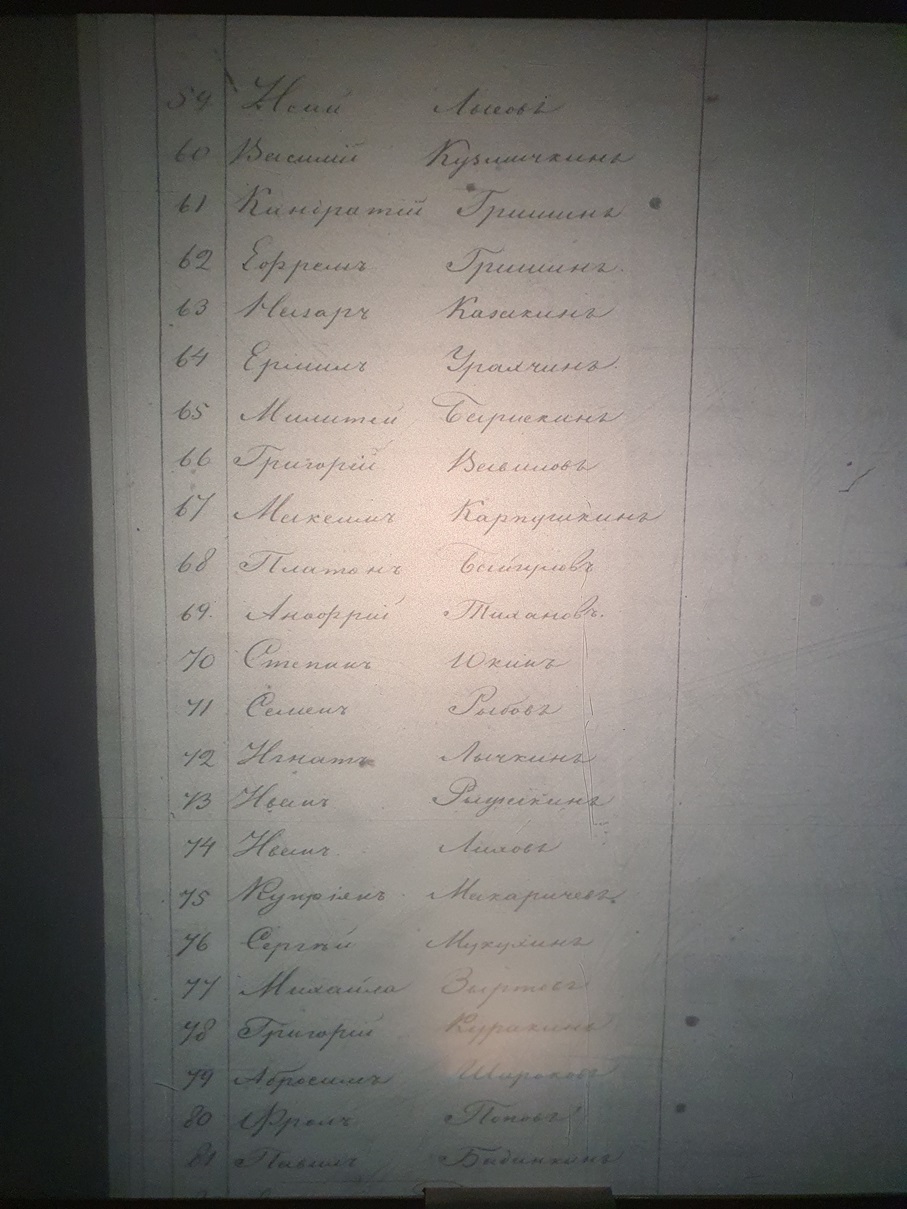 59 Исай Лысовъ
60 Василій Кузмичкинъ
61 Кандратій Гришинъ
62 Ефремъ Гришинъ
63 Назаръ Казакинъ
64 Ермилъ Уралчинъ
65 Милитей
66 Григорій Вавиловъ
67 Максимъ Карпушкинъ
68 Платонъ
69. Анофрій Тихановъ.
70 Степанъ Юкинъ
71 Семенъ Рыбовъ
72 Игнатъ Лычкинъ
73 Иванъ
74 Иванъ Лиховъ
75 Купріянъ Макаричевъ
76 Сергѣй Мукулинъ
77 Михайла Зыртевъ
78 Григорій Куракинъ
79 Абросимъ Шароновъ
80 Фролъ Поповъ
81 Павилъ Бадинкинъ